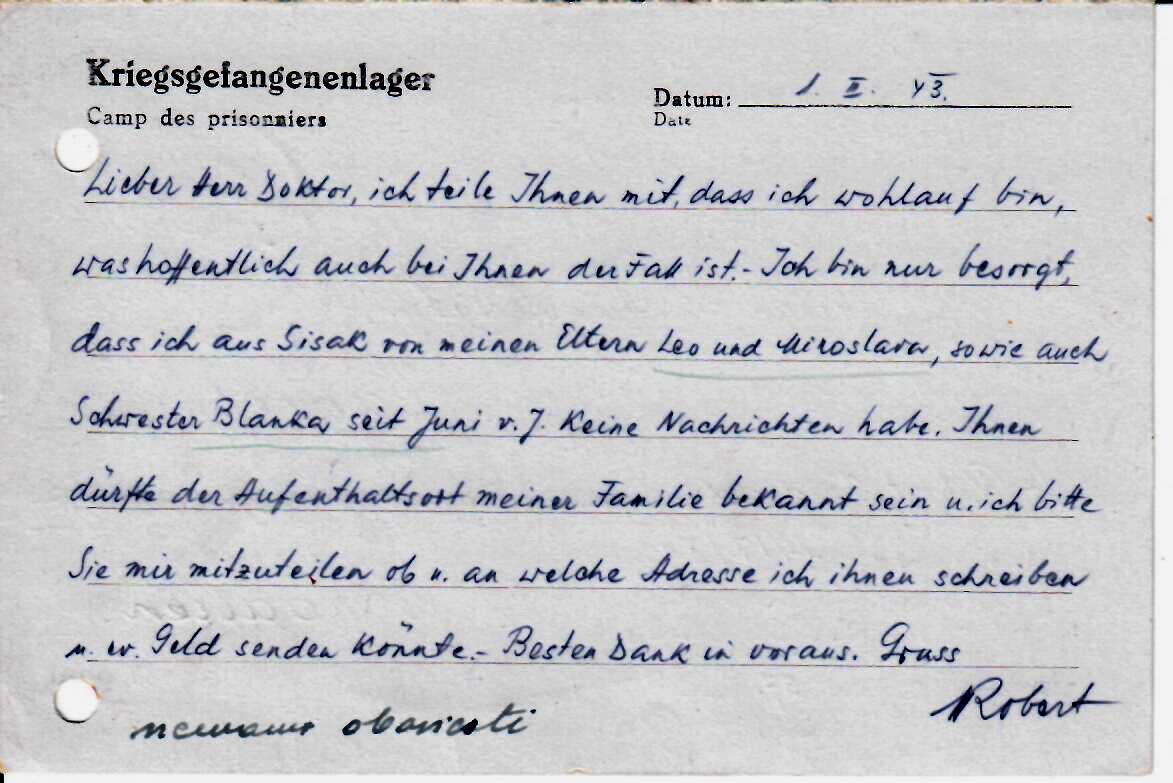 Kriegsgefangenenlager
Camp des prisonniers
Datum: 1. II. 43.
Date
Lieber Herr Doktor, ich teile Ihnen mit, dass ich wohlauf bin,
was hoffentlich auch bei Ihnen der Fall ist.- Ich bin nur besorgt,
dass ich aus Sisak von meinen Eltern Leo und Miroslava, sowie auch
Schwester Blanka seit Juni v. J. keine Nachrichten habe. Ihnen
dürfte der Aufenthaltsort meiner Familie bekannt sein u. ich bitte
Sie mir mitzuteilen ob u. an welche Adresse ich ihnen schreiben
u. ev. Geld senden könnte.- Besten Dank in voraus. Gruss
Robert
nemamo obavesti